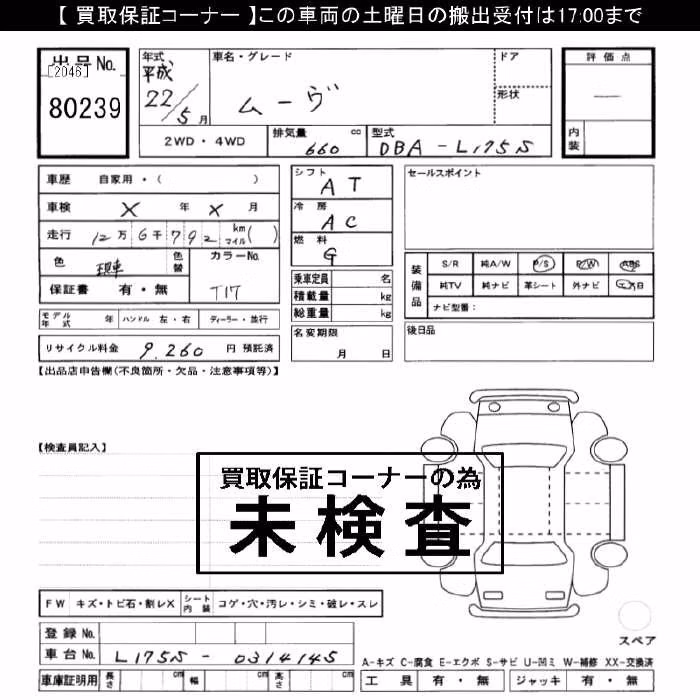 【 買取保証コーナー 】この車両の土曜日の搬出受付は17:00まで
出品No.
[2046]
80239
年式 車名・グレード ドア 評価点
平成
22/5月 ムーヴ 形状 —
2WD・4WD 排気量 660 cc 型式 DBA-L175S 内装
車歴 自家用・( )
車検 X 年 X 月
走行 12万6千792 km マイル( )
色 現車 色替 カラーNo.
保証書 有・無 T17
モデル年式 年 ハンドル 左・右 ディーラー・並行
リサイクル料金 9,260 円 預託済
シフト AT
冷房 AC
燃料 G
乗車定員 名
積載量 kg
総重量 kg
名変期限
月 日
セールスポイント
装備品 S/R 純A/W P/S P/W ABS
純TV 純ナビ 革シート 外ナビ エアB
ナビ型番:
後日品
【出品店申告欄(不良箇所・欠品・注意事項等)】
【検査員記入】
買取保証コーナーの為
未検査
FW キズ・トビ石・割レX シート内装 コゲ・穴・汚レ・シミ・破レ・スレ
登録No.
車台No. L175S - 0314145
車庫証明用 長さ cm 幅 cm 高さ cm
スペア
A-キズ C-腐食 E-エクボ S-サビ U-凹ミ W-補修 XX-交換済
工具 有・無 ジャッキ 有・無